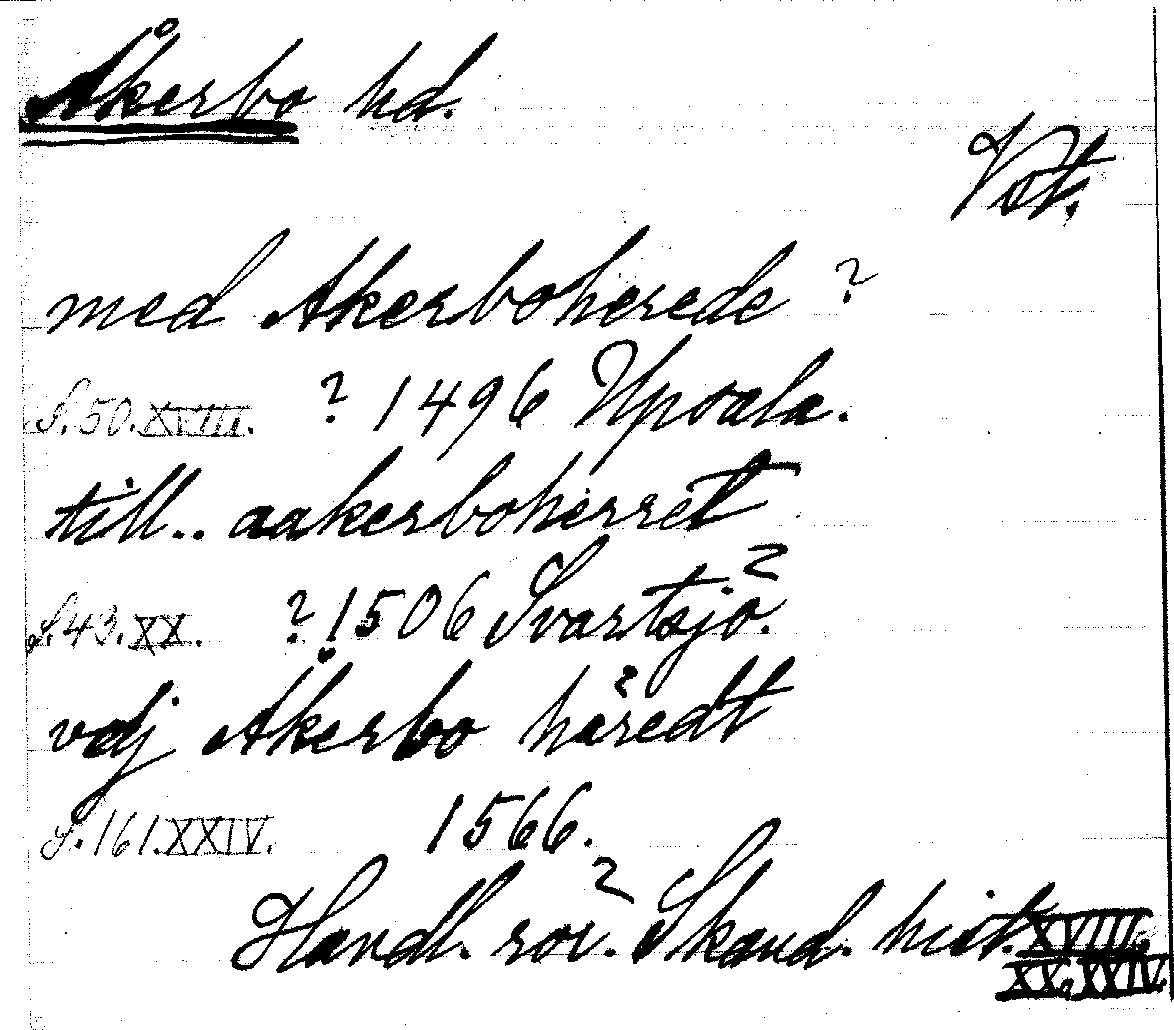 Åkerbo hd.
Vst.
med Akerboherede ?
S. 50. XVIII. ? 1496 Upsala.
till.. aakerboherret
S. 43. XX. ? 1506 Svartsjö.
vdj Åkerbo häredt
S. 161. XXIV. 1566.
Handl. rör. Skand. hist. XVIII,
XX, XXIV.